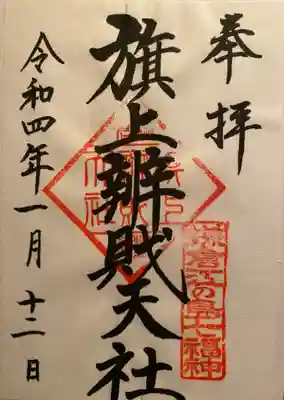 奉拝
旗上辨財天社
令和四年一月十二日
鎌倉江の島七福神